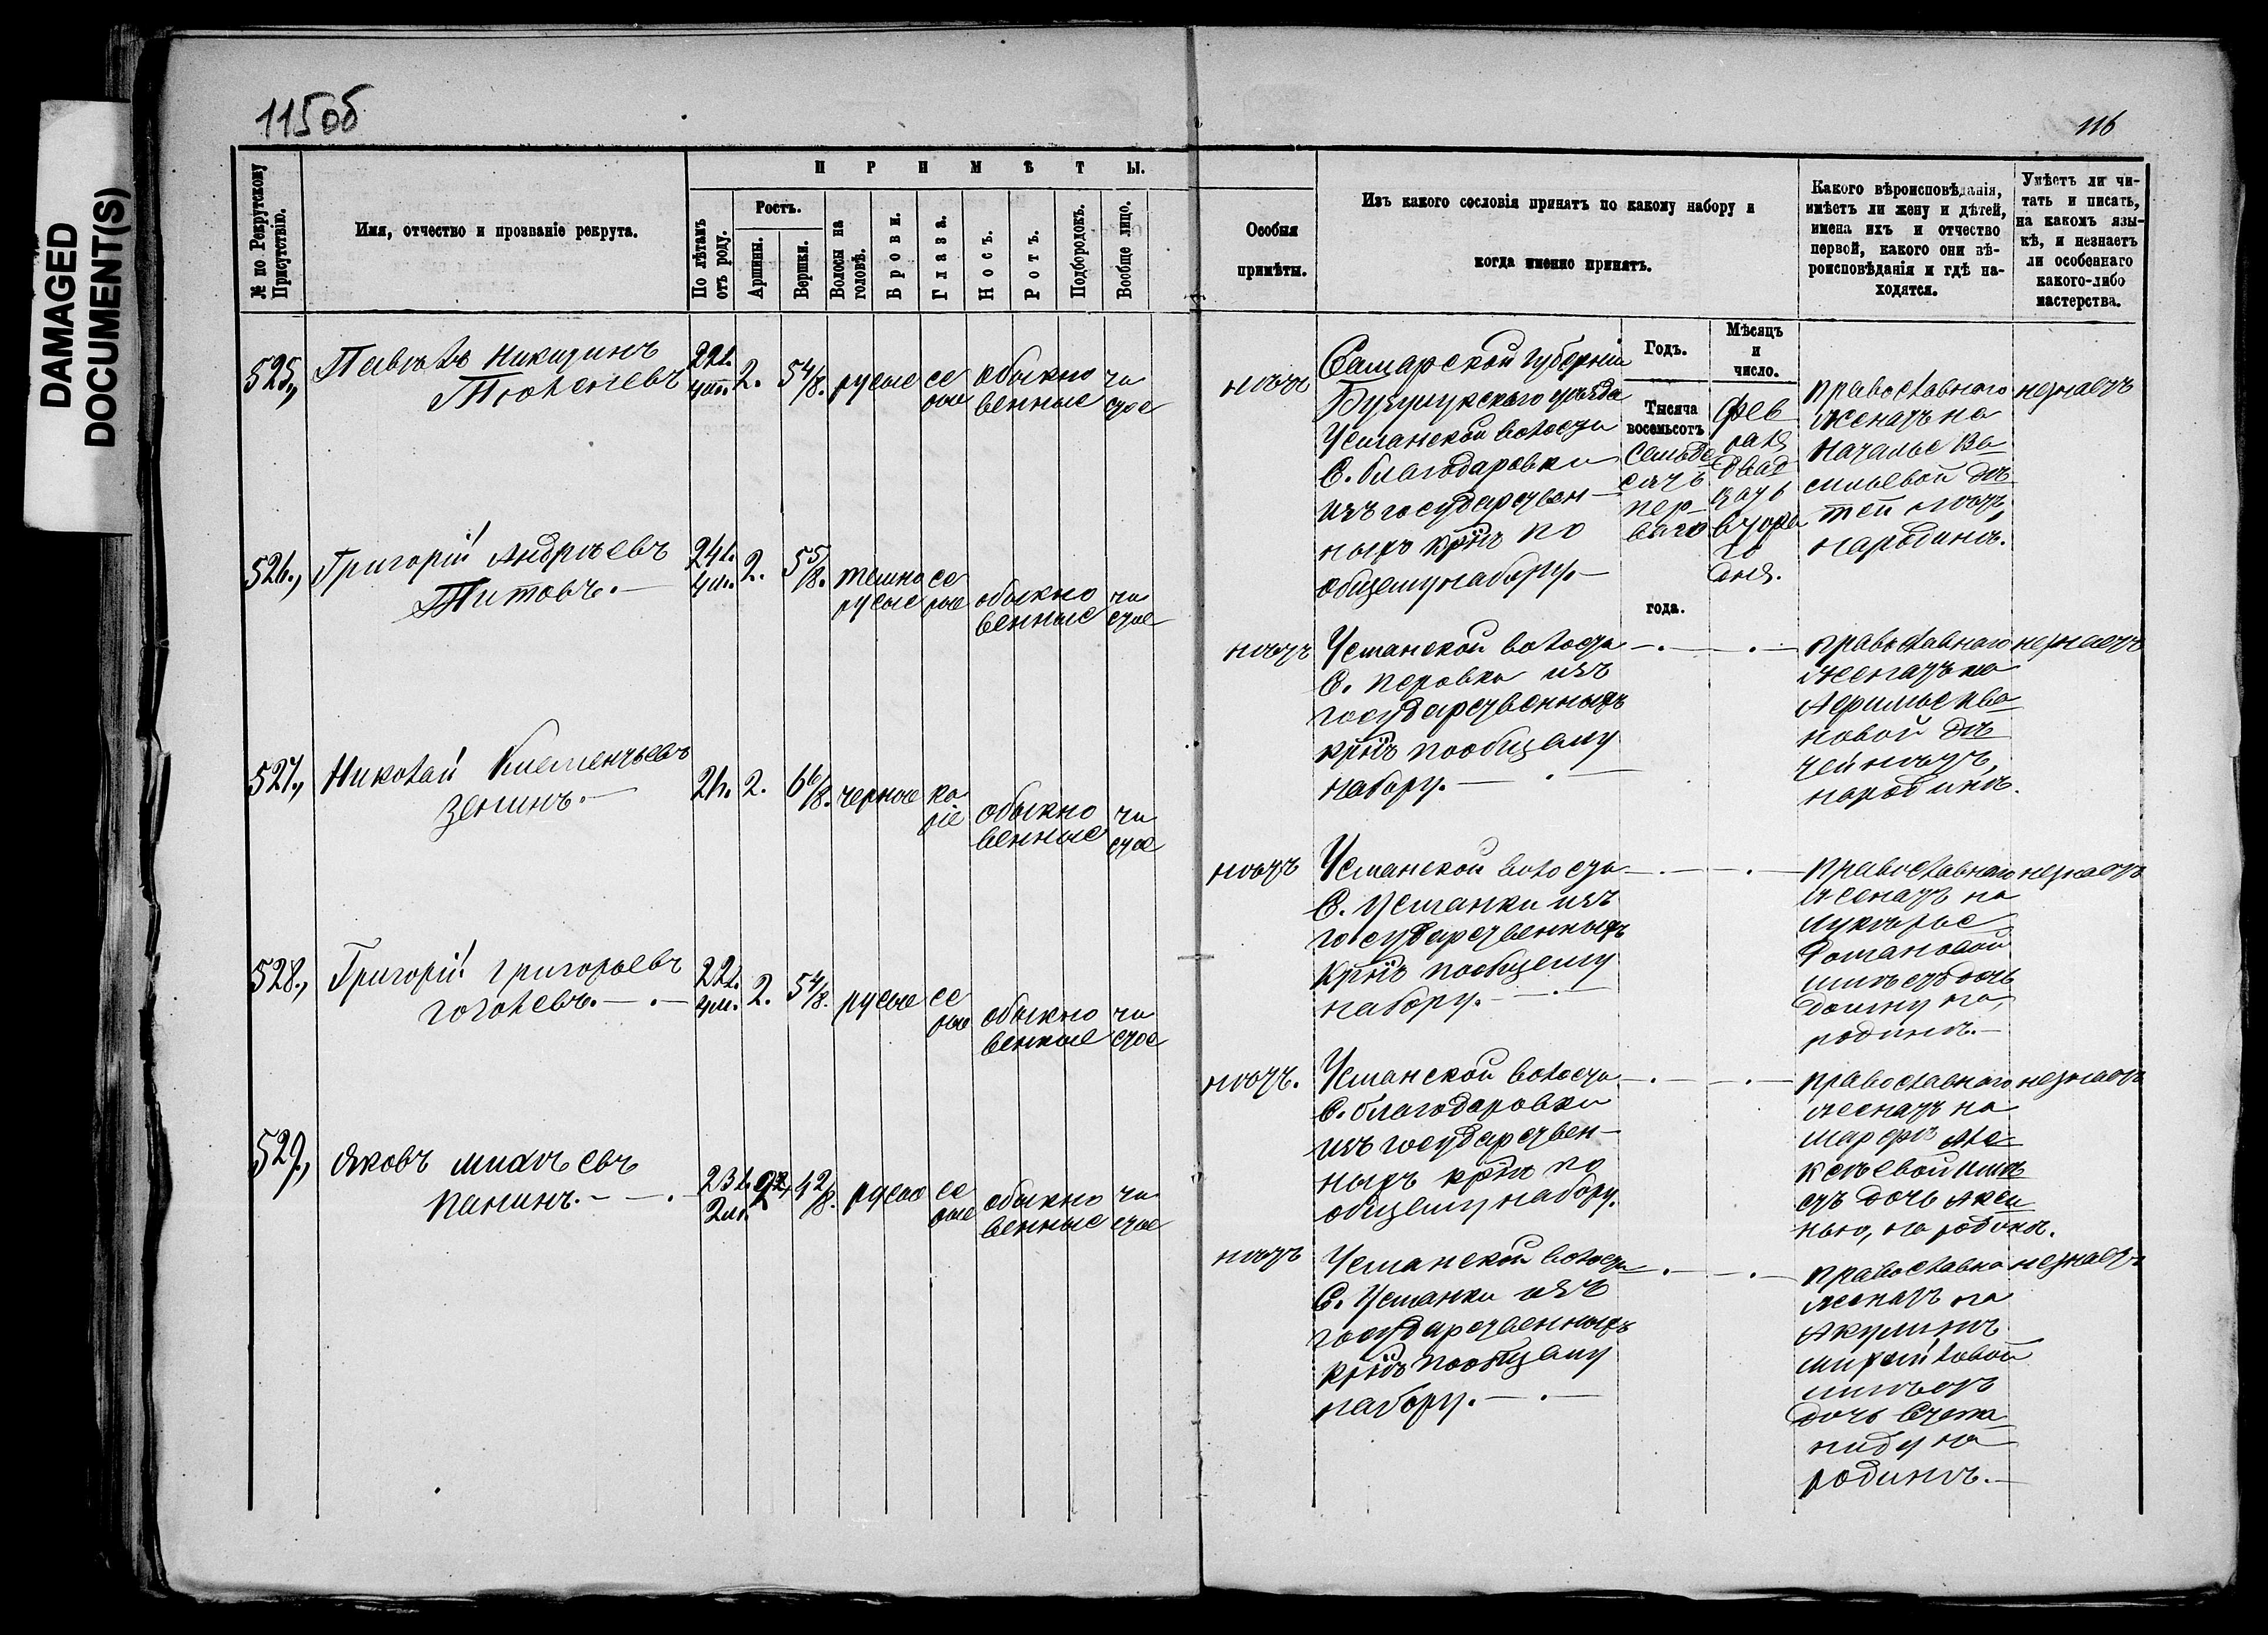 DAMAGED
DOCUMENT(S)
115об
116
№ по Рекрутскому
Присутствію.
Имя, отчество и прозваніе рекрута.
ПРИМѢТЫ.
По лѣтамъ
отъ роду.
Ростъ.
Аршины.
Вершки.
Волосы на
головѣ.
Брови.
Глаза.
Носъ.
Ротъ.
Подбородокъ.
Вообще лицо.
Особыя
примѣты.
Изъ какого сословія принятъ по какому набору и
когда именно принятъ.
Какого вѣроисповѣданія,
имѣетъ ли жену и дѣтей,
имена ихъ и отчество
первой, какого они вѣ-
роисповѣданія и гдѣ на-
ходятся.
Умѣетъ ли чи-
тать и писать,
на какомъ язы-
кѣ, и незнаетъ
ли особеннаго
какого-либо
мастерства.
525.,
Павелъ Никитинъ
22 л.
2.
5 4/8.
русые
се
рые
обыкно
венные
чи
стое
нѣтъ
Самарской губерніи
Бузулукскаго уѣзда
Усманской волости
С. Благодаровки
изъ государствен-
ныхъ крнъ по
общему набору.—
Годъ.
Тысяча
восемьсотъ
семьде
сятъ
пер-
ваго
года.
Мѣсяцъ
и
число.
Фев
раля
двад
цать
втора
го
дня.
православного
женатъ на
Наталье Ва
сильевой дѣ
тей нѣтъ,
народинѣ.
незнаетъ
526.,
Григорій Андреевъ
Титовъ.—
24 л.
2.
5 5/8.
темно
русые
се
рые
обыкно
венные
чи
стое
нѣтъ
Усманской волости
С.
изъ
государственныхъ
крнъ пообщему
набору.—
православнаго
женатъ на
Афимье Ива
новой дѣ
тей нѣтъ,
народинѣ.
незнаетъ
527.,
Николай Клементьевъ
Зенинъ.—
2.
6 6/8.
черные
ка
ріе
обыкно
венные
чи
стое
нѣтъ
Усманской волости
С. Усманки изъ
государственныхъ
крнъ пообщему
набору.—
православнаго
женатъ на
Лукерье
имѣетъ дочь
Домну на
родинѣ.—
незнаетъ
528.,
Григорій Григорьевъ
Гоголевъ.—
22 л.
2.
5 4/8.
русые
се
рые
обыкно
венные
чи
стое
нѣтъ.
Усманской волости
С. Благодаровки
изъ государствен-
ныхъ крнъ по
общему набору.
православнаго
женатъ на
Марфѣ Але
ксѣевой имѣ
етъ дочь Акси
нью, на родинѣ.
незнаетъ
529.,
Яковъ Михѣевъ
Панинъ.—
23 л.
2 м.
4 2/8.
русые
се
рые
обыкно
венные
чи
стое
нѣтъ
Усманской волости
С. Усманки изъ
государственныхъ
крнъ пообщему
набору.—
православна
женатъ на
Акулинѣ
имѣетъ
дочь Степа
ниду на
родинѣ.—
незнаетъ